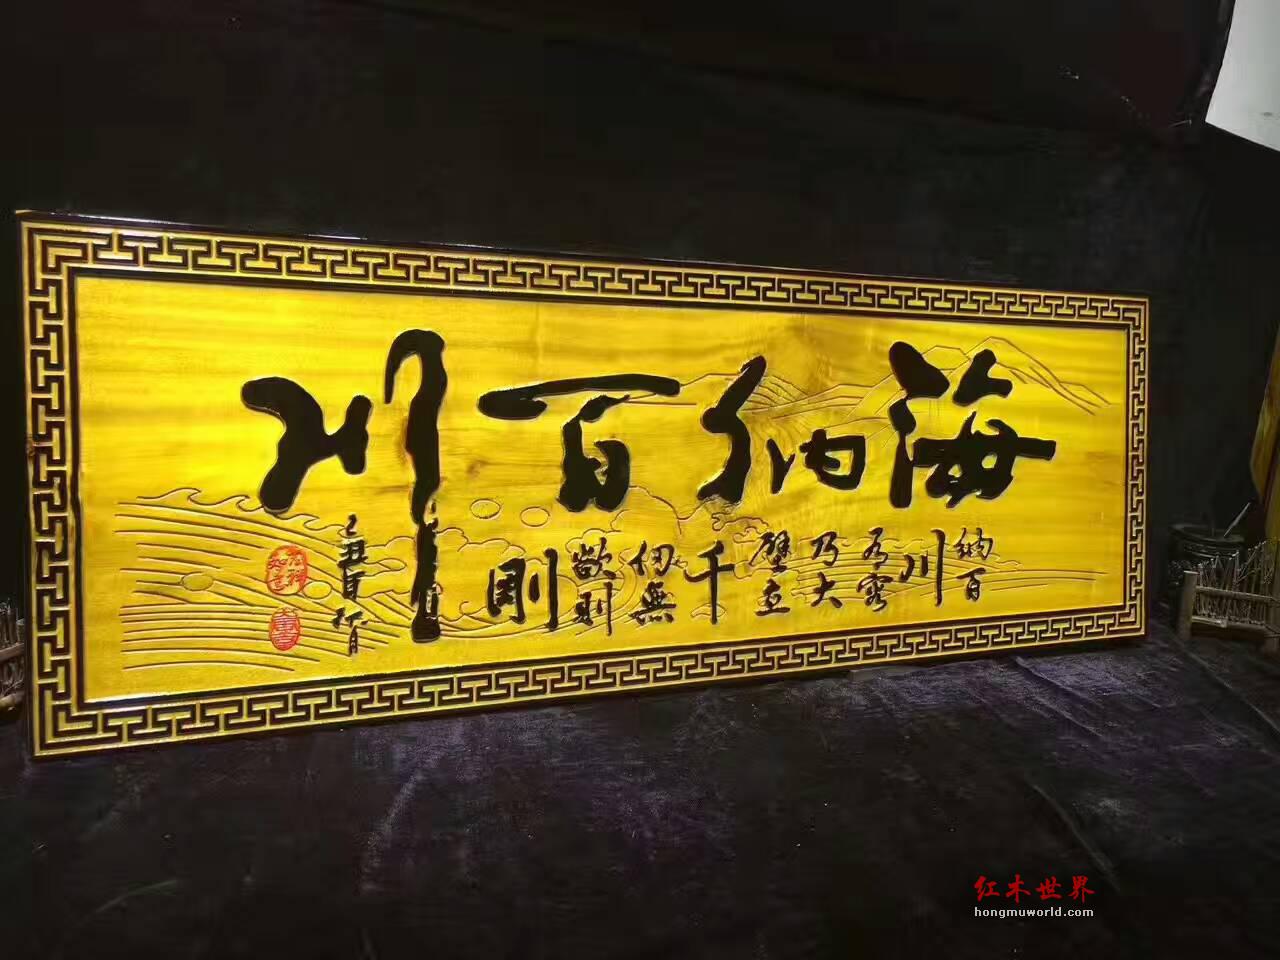 海纳百川
纳百
川
有容
乃大
壁立
千
仞無
欲则
剛
乙丑
红木世界
hongmuworld.com